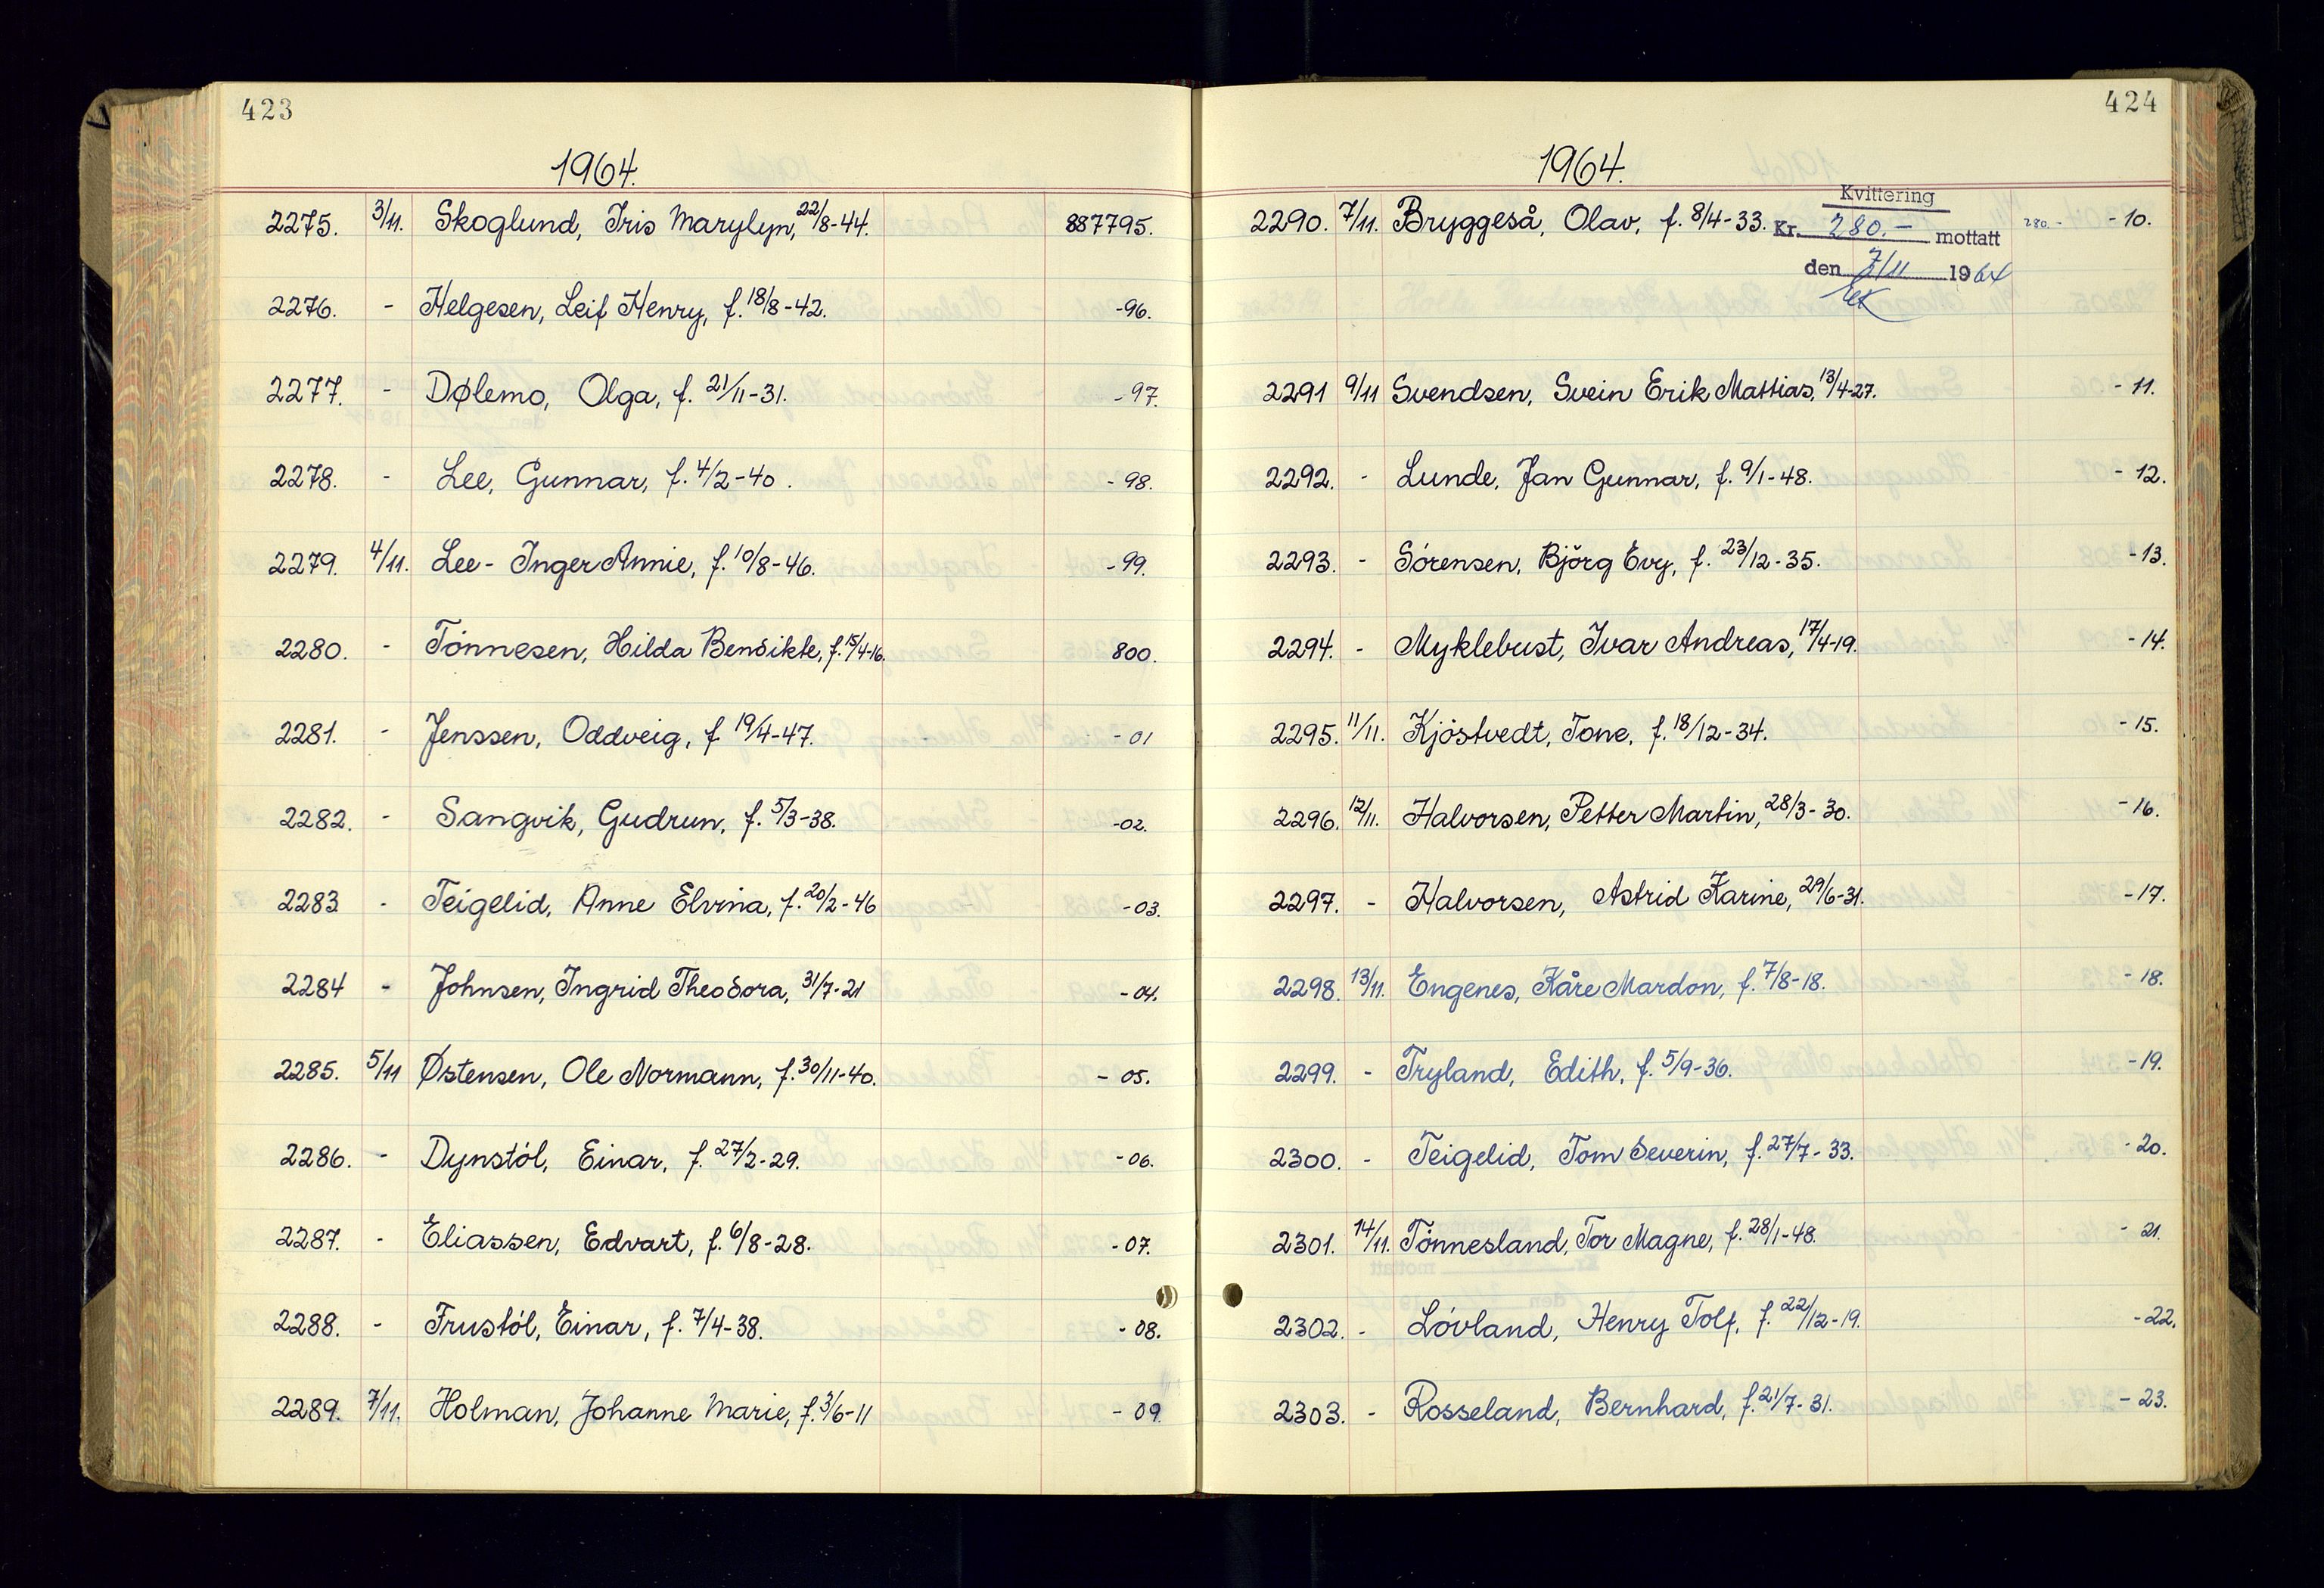 423
1964.
2275. 3/11. Skoglund, Iris Marylyn, 22/8-44. 887795.
2276. - Helgesen, Leif Henry, f. 18/8-42. -96.
2277. - Dølemo, Olga, f. 21/11-31. -97.
2278. - Lee, Gunnar, f. 4/2-40. -98.
2279. 4/11. Lee- Inger Annie, f. 10/8-46. -99.
2280. - Tónnesen, Hilda Bendikte, f. 15/4-16. 800.
2281. - Jenssen, Oddveig, f 19/4-47. -01
2282. - Sangvik, Gudrun, f. 5/3-38. -02.
2283 - Teigelid, Anne Elvina, f. 20/2-46 -03.
2284 - Johnsen, Ingrid Theodora, 31/7-21 -04.
2285. 5/11 Østensen, Ole Normann, f. 30/11-40. -05.
2286. - Dynstól, Einar, f. 27/2-29. -06.
2287. - Eliassen, Edvart, f. 6/8-28. -07.
2288. - Frustól, Einar, f. 7/4-38. -08.
2289. 7/11. Holman, Johanne Marie, f. 3/6-11 -09.
424
1964.
Kvittering
2290. 7/11. Bryggeså, Olav, f. 8/4-33. Kr. 280.- mottatt 280.- -10.
den 7/11 1964
2291 9/11 Svendsen, Svein Erik Mattias, 13/4-27. -11.
2292. - Lunde, Jan Gunnar, f. 9/1-48. -12.
2293. - Sórensen, Bjõrg Evy, f. 23/12-35. -13.
2294. - Myklebust, Ivar Andreas, 17/4-19. -14.
2295. 11/11. Kjóstvedt, Tone, f. 18/12-34. -15.
2296. 12/11. Halvorsen, Petter Martin, 28/3-30. -16.
2297. - Halvorsen, Astrid Karine, 29/6-31. -17.
2298. 13/11. Engenes, Kåre Mardon, f. 7/8-18. -18.
2299. - Tryland, Edith, f. 5/9-36. -19.
2300. - Teigelid, Tom Severin, f. 27/7-33. -20.
2301. 14/11. Tónnesland, Tor Magne, f. 28/1-48. -21.
2302. - Lóvland, Henry Tolf, f. 22/12-19. -22.
2303. - Rosseland, Bernhard, f. 21/7-31. -23.